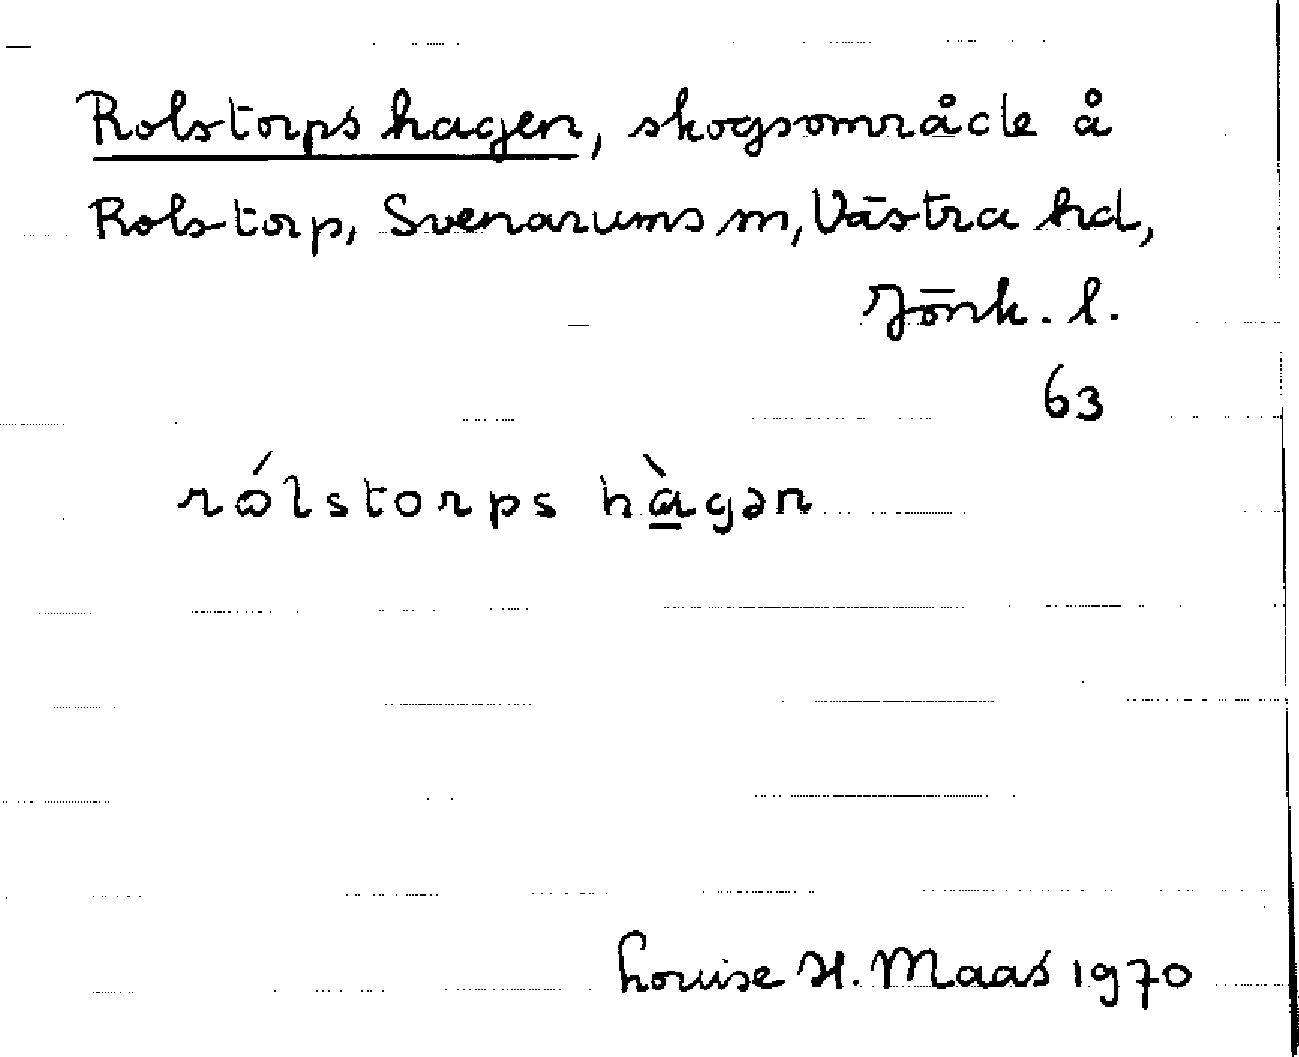 Rolstorps hagen, skogsområde å
Rolstorp, Svenarums sn, Västra hd,
Jönk. l.
63
rólstorps hàgən
Louise H. Maas 1970